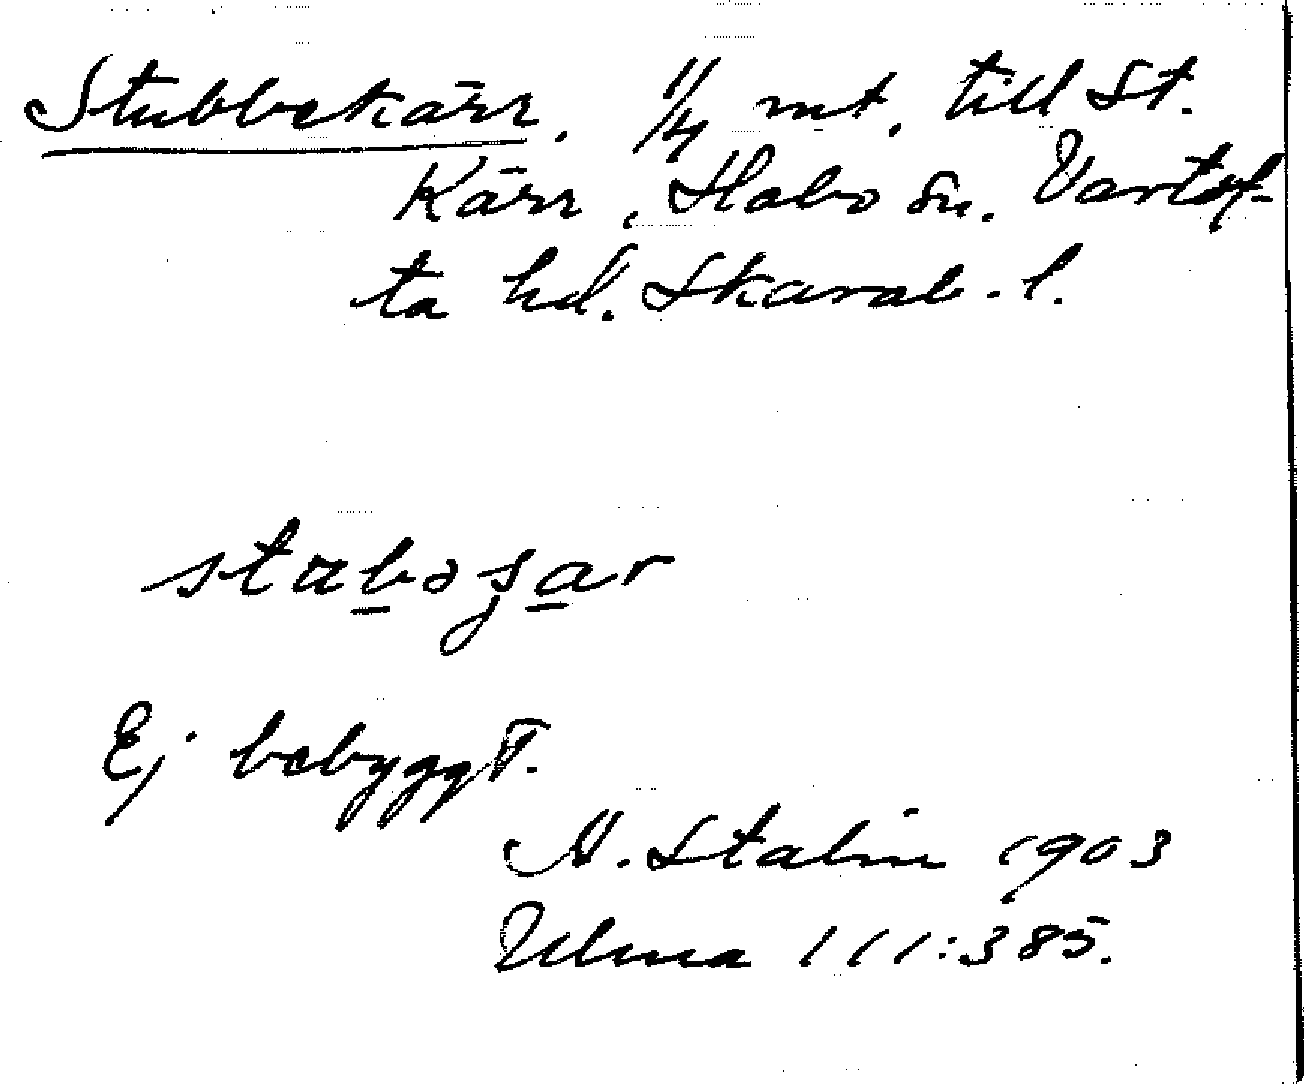 Stubbekärr. 1/4 mt. till St.
Kärr, Habo sn. Vartof-
ta hd. Skarab. l.
Ej bebyggt.
N. Stalin 1903
Ulma 111:385.